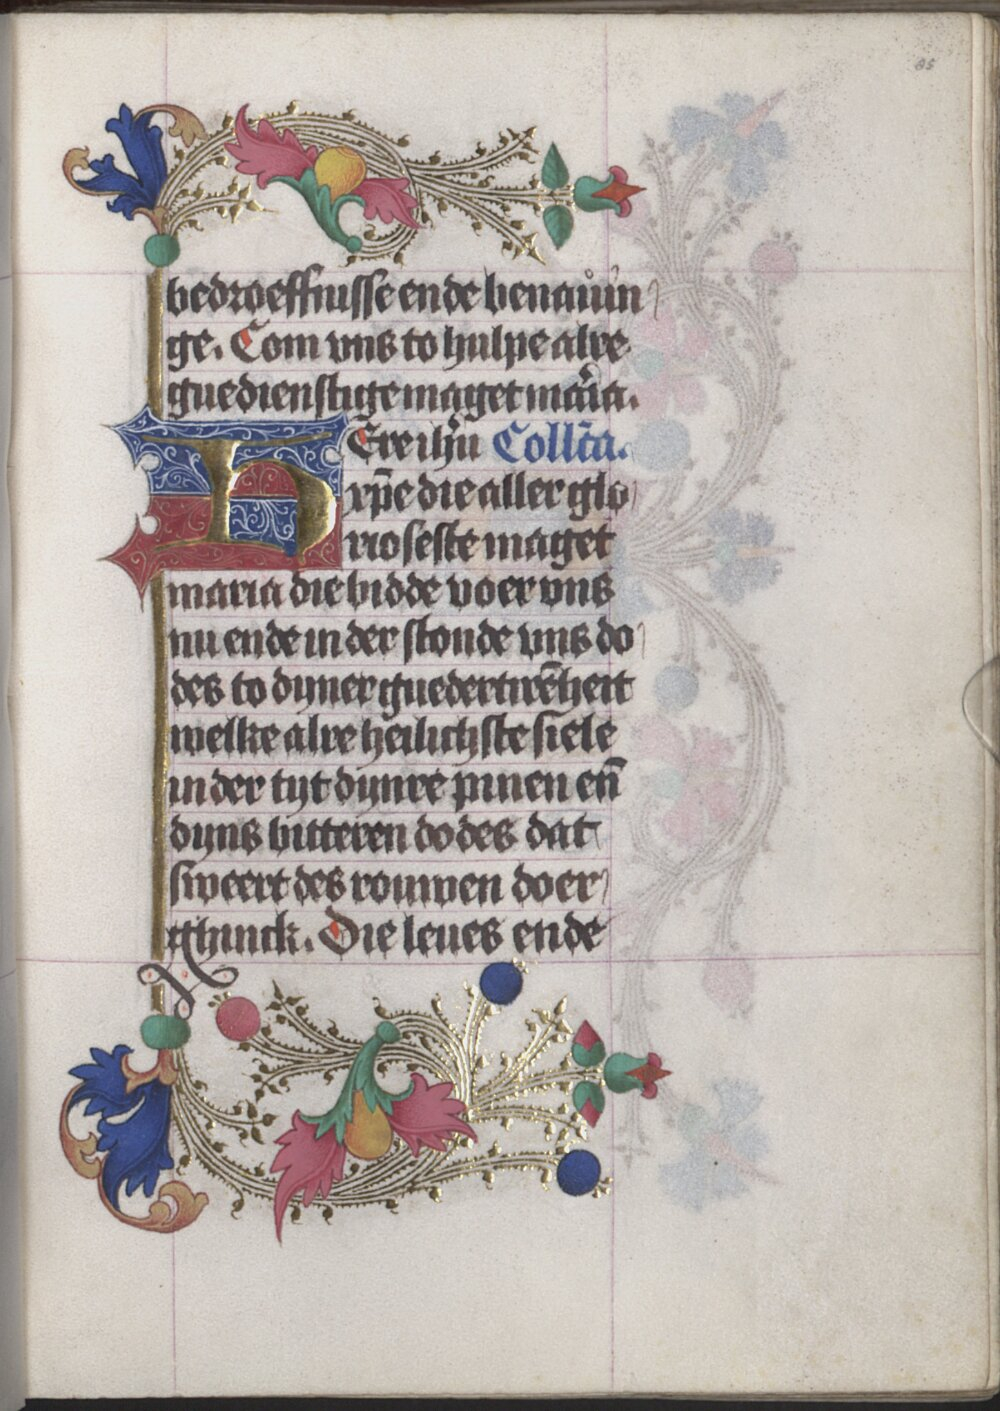 85
bedroeffnisse ende benauůn
ge. Com vns to hulpe alre
guedienstige maget maria.
HEre ihū Collcā.
xp̄e die aller glo
rioseste maget
maria die bidde voer vns
nu ende in der stonde vns do
des to dyner guedertirēheit
welke alre heilichste siele
in der tyt dynre pinen en̄
dyns bitteren dodes dat
sweert des rouwen doer
ghinck. Die leues ende